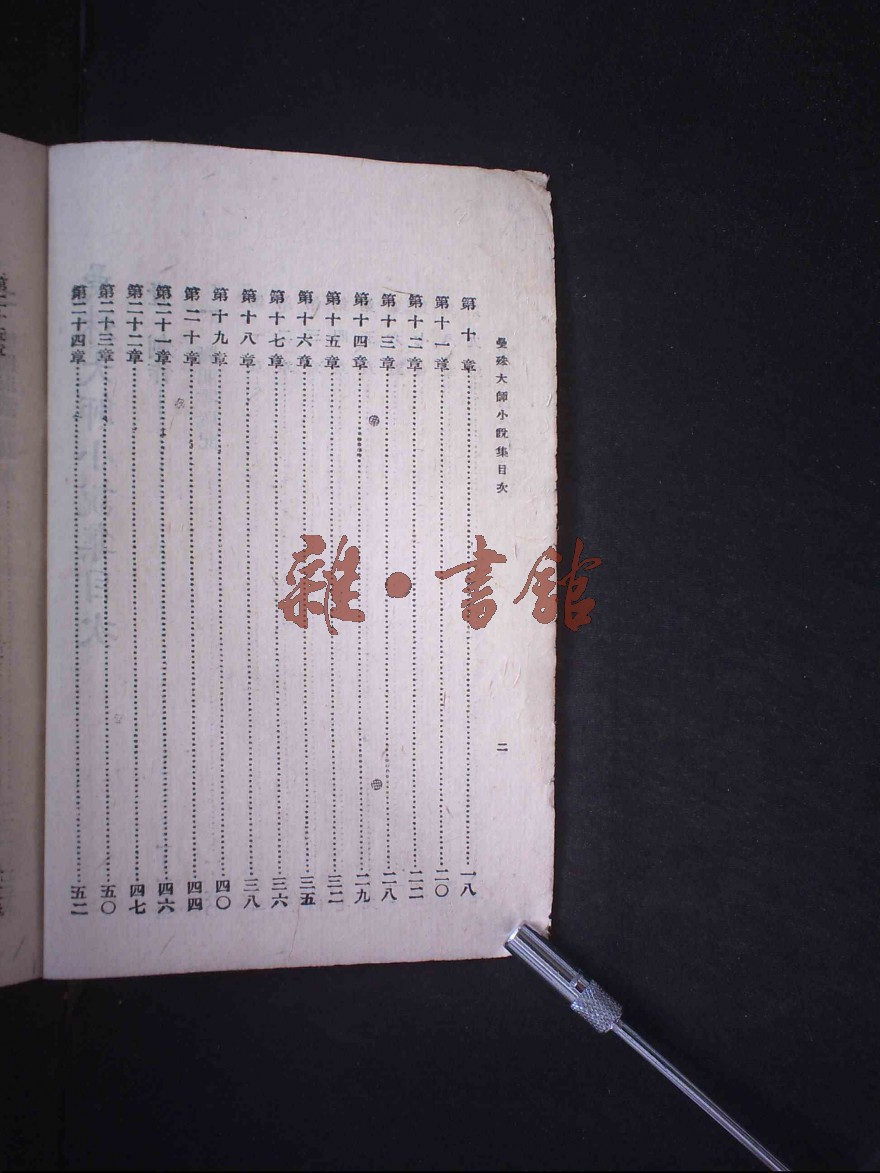 曼殊大師小說集目次
二
第十章……一八
第十一章……二〇
第十二章……二二
第十三章……二八
第十四章……二九
第十五章……三二
第十六章……三五
第十七章……三六
第十八章……三八
第十九章……四〇
第二十章……四四
第二十一章……四六
第二十二章……四七
第二十三章……五〇
第二十四章……五二
雜·書館